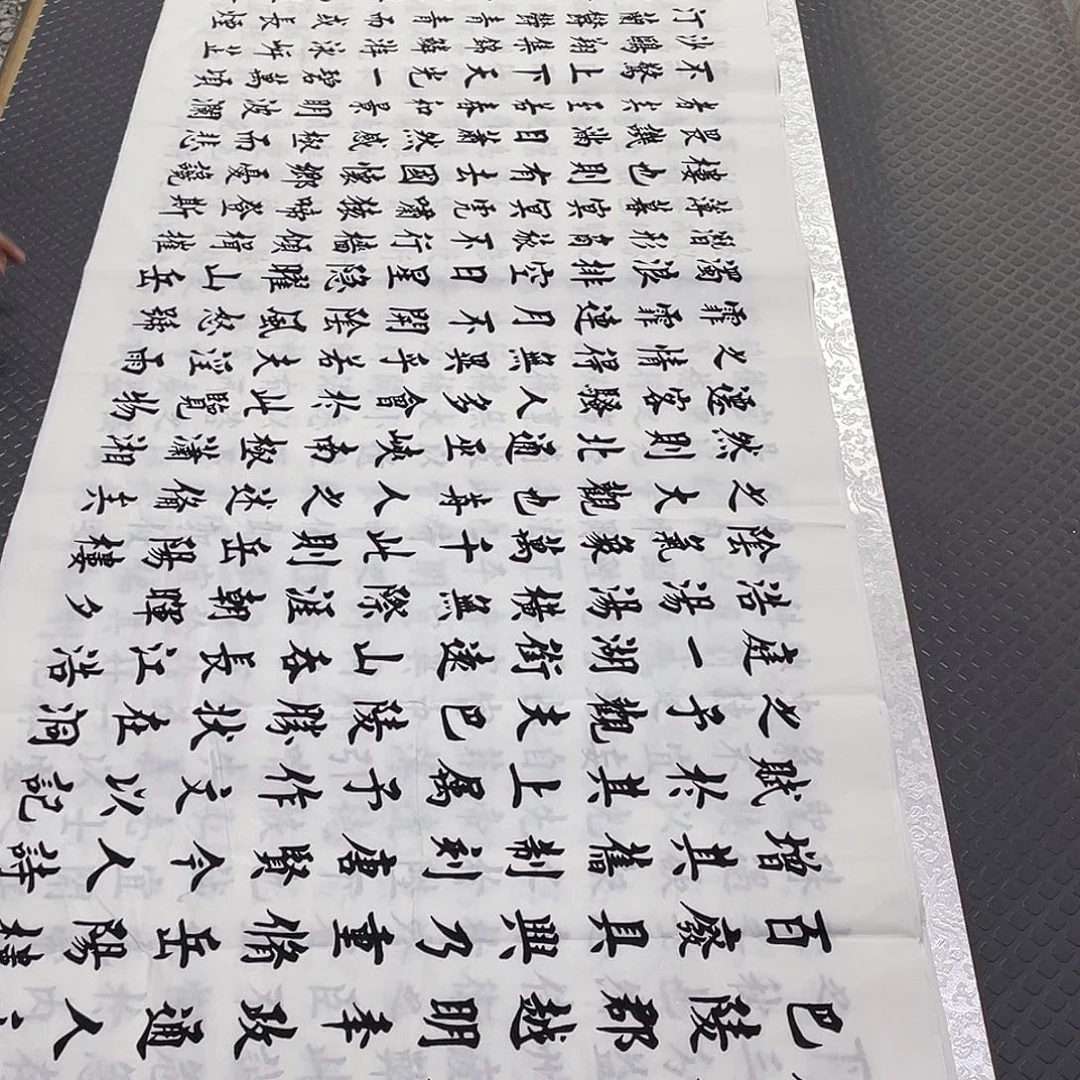 巴陵郡越明年政通人
百廢具興乃重脩岳陽樓
增其舊制刻唐賢今人詩
賦於其上屬予作文以記
之予觀夫巴陵勝狀在洞
庭一湖銜遠山吞長江浩
浩湯湯橫無際涯朝暉夕
陰氣象萬千此則岳陽樓
之大觀也前人之述備矣
然則北通巫峽南極瀟湘
遷客騷人多會於此覽物
之情得無異乎若夫淫雨
霏霏連月不開陰風怒號
濁浪排空日星隱曜山岳
潛形商旅不行檣傾楫摧
薄暮冥冥虎嘯猿啼登斯
樓也則有去國懷鄉憂讒
畏譏滿目蕭然感極而悲
者矣至若春和景明波瀾
不驚上下天光一碧萬頃
沙鷗翔集錦鱗游泳岸芷
汀蘭鬱鬱青青而或長煙